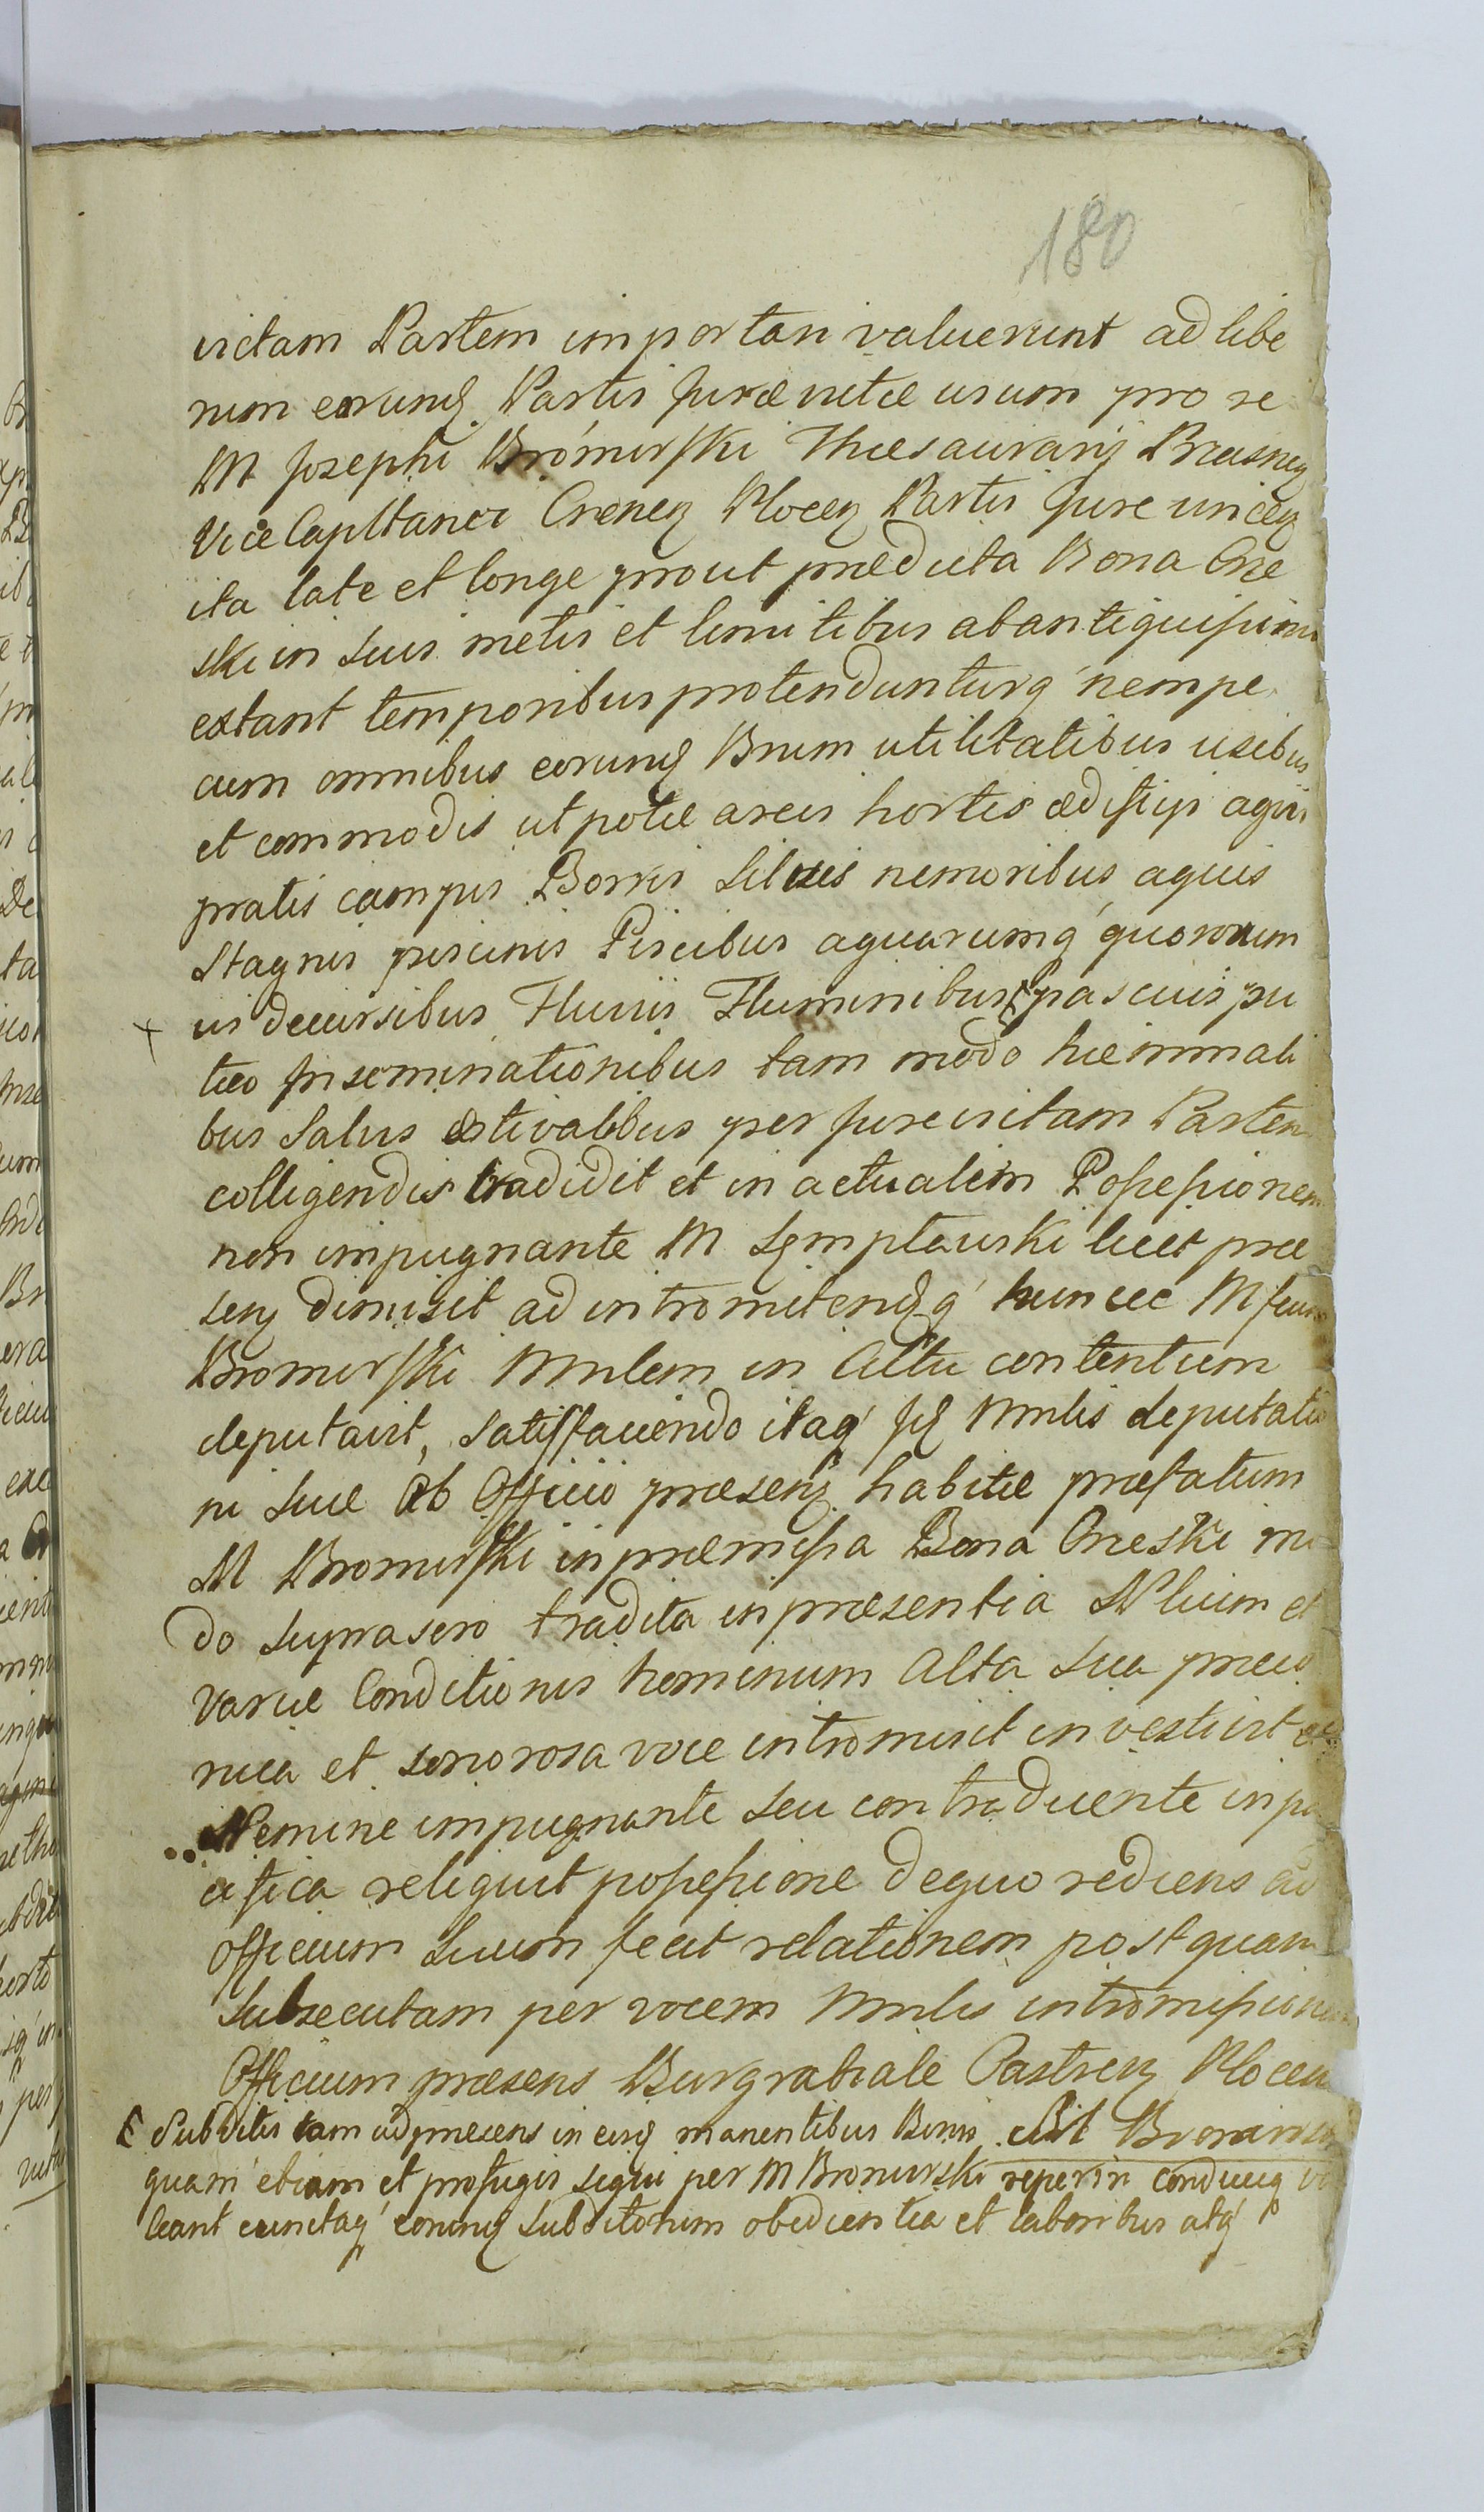 180
victam Partem importari valuerunt ad libe
rum eorund Partis Jurævictæ usum pro se
M Josephi Brómirski Thæsaurarij Brasneŋ
Vice Capltanei Creneŋ Ploceŋ Partis Jure viceŋ
ita late et longe prout prædicta Bona Orze
ski in suis metis et limitibus abantiquissimis
extant temporibus protendunturq́ nempe
cum omnibus eorund Bnum utilitatibus usibus
et commodis utpotæ areis hortis ædificijs agris
pratis campis Borris Siluis nemoribus aquis
Stagnis piscinis Piscibus aquarumq́ quorum
vis decursibus Fluviis Fluminibus pascuis pu
teo Inseminationibus tam modo hiemmali
bus Satis æstivalibus per Jurevictam Partem
colligendis tradidit et in actualem Possessionem
non impugnante M Sęmpławski licet præ
senŋ dimisit ad intromitendq́ huncce M Jum
Bromirski Mnlem in Actu contentum
deputavit, Satisfaciendo itaq́ Id Mnlis deputatio
ni suæ ab Officio præsenŋ habitæ præfatum
M Bromirski in præmissa Bona Orzeski mo
do suprascro tradita in præsentia Nlium et
variæ Conditionis hominum Alta sua præco
nica et sonorosa voce intromisit investivit et
Nemine impugnante seu contradicente in pa
cifica reliquit possessione dequo rediens ad
officium Suum fecit relationem post quam
Subsecutam per vocem Mnlis intromissionem
Officium præsens Burgrabiale Castreŋ Ploceŋ
Subditis tam adpræsens in eisd manentibus Bonis
quam etiam et profugis sequi per M Bromirski reperiri conduciq va
leant cunctaq́ eorund Subditorum obedientia et laboribus atq́